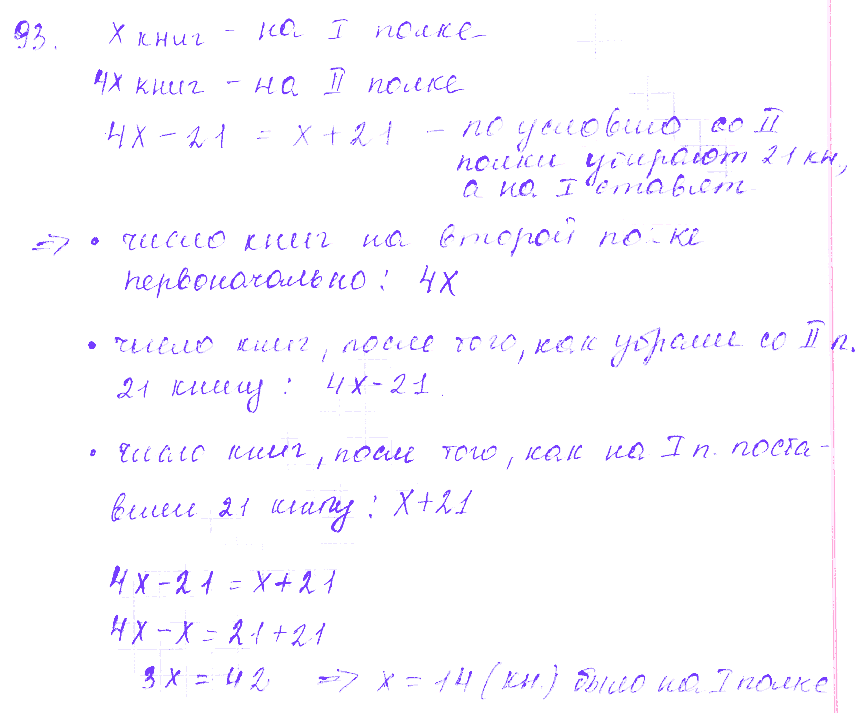 93. x книг - на I полке
4x книг - на II полке
4x - 21 = x + 21 - по условию со II
полки убирают 21 кн,
а на I ставят
=> • число книг на второй полке
первоначально: 4x
• число книг, после того, как убрали со II п.
21 книгу: 4x - 21.
• число книг, после того, как на I п. поста-
вили 21 книгу: x+21
4x - 21 = x + 21
4x - x = 21 + 21
3x = 42 => x = 14 (кн.) было на I полке